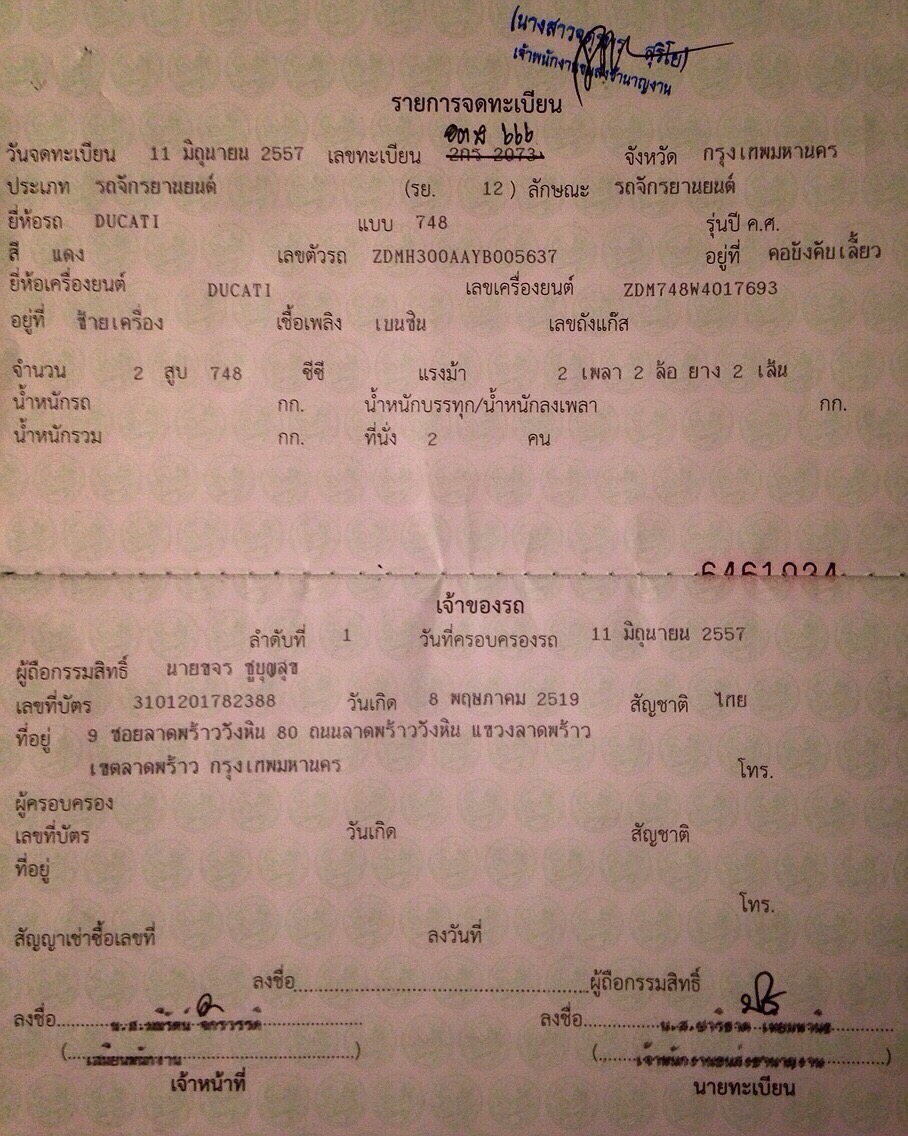 (นางสาว สุริโย)
เจ้าพนักงานขนส่งชำนาญงาน
รายการจดทะเบียน
๖๖๖
วันจดทะเบียน 11 มิถุนายน 2557 เลขทะเบียน 2กร 2073 จังหวัด กรุงเทพมหานคร
ประเภท รถจักรยานยนต์ (รย. 12 ) ลักษณะ รถจักรยานยนต์
ยี่ห้อรถ DUCATI แบบ 748 รุ่นปี ค.ศ.
สี แดง เลขตัวรถ ZDMH300AAYB005637 อยู่ที่ คอบังคับเลี้ยว
ยี่ห้อเครื่องยนต์ DUCATI เลขเครื่องยนต์ ZDM748W4017693
อยู่ที่ ซ้ายเครื่อง เชื้อเพลิง เบนซิน เลขถังแก๊ส
จำนวน 2 สูบ 748 ซีซี แรงม้า 2 เพลา 2 ล้อ ยาง 2 เส้น
น้ำหนักรถ กก. น้ำหนักบรรทุก/น้ำหนักลงเพลา กก.
น้ำหนักรวม กก. ที่นั่ง 2 คน
6461034
เจ้าของรถ
ลำดับที่ 1 วันที่ครอบครองรถ 11 มิถุนายน 2557
ผู้ถือกรรมสิทธิ์ นายขจร ชูบุญสุข
เลขที่บัตร 3101201782388 วันเกิด 8 พฤษภาคม 2519 สัญชาติ ไทย
ที่อยู่ 9 ซอยลาดพร้าววังหิน 80 ถนนลาดพร้าววังหิน แขวงลาดพร้าว
เขตลาดพร้าว กรุงเทพมหานคร โทร.
ผู้ครอบครอง
เลขที่บัตร วันเกิด สัญชาติ
ที่อยู่
โทร.
สัญญาเช่าซื้อเลขที่ ลงวันที่
ลงชื่อ ผู้ถือกรรมสิทธิ์
ลงชื่อ น.ส. ลงชื่อ น.ส.
(เสมียนพนักงาน) (เจ้าพนักงานขนส่งชำนาญงาน)
เจ้าหน้าที่ นายทะเบียน